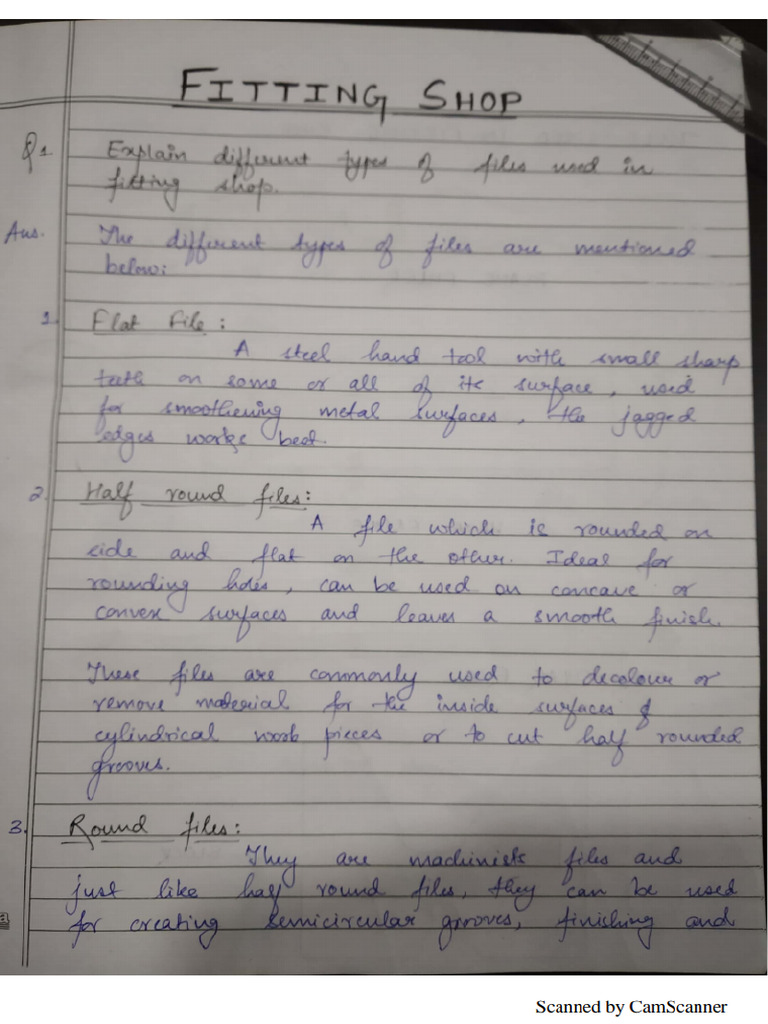 FITTING SHOP
Q1 Explain different types of files used in
fitting shop.
Ans. The different types of files are mentioned
below:
1. Flat File :
A steel hand tool with small sharp
teeth on some or all of its surface, used
for smoothening metal surfaces, the jagged
edges works best.
2. Half round files:
A file which is rounded on
side and flat on the other. Ideal for
rounding holes, can be used on concave or
convex surfaces and leaves a smooth finish.
These files are commonly used to decolour or
remove material for the inside surfaces of
cylindrical work pieces or to cut half rounded
grooves.
3. Round files:
They are machinists files and
just like half round files, they can be used
for creating semicircular grooves, finishing and
Scanned by CamScanner